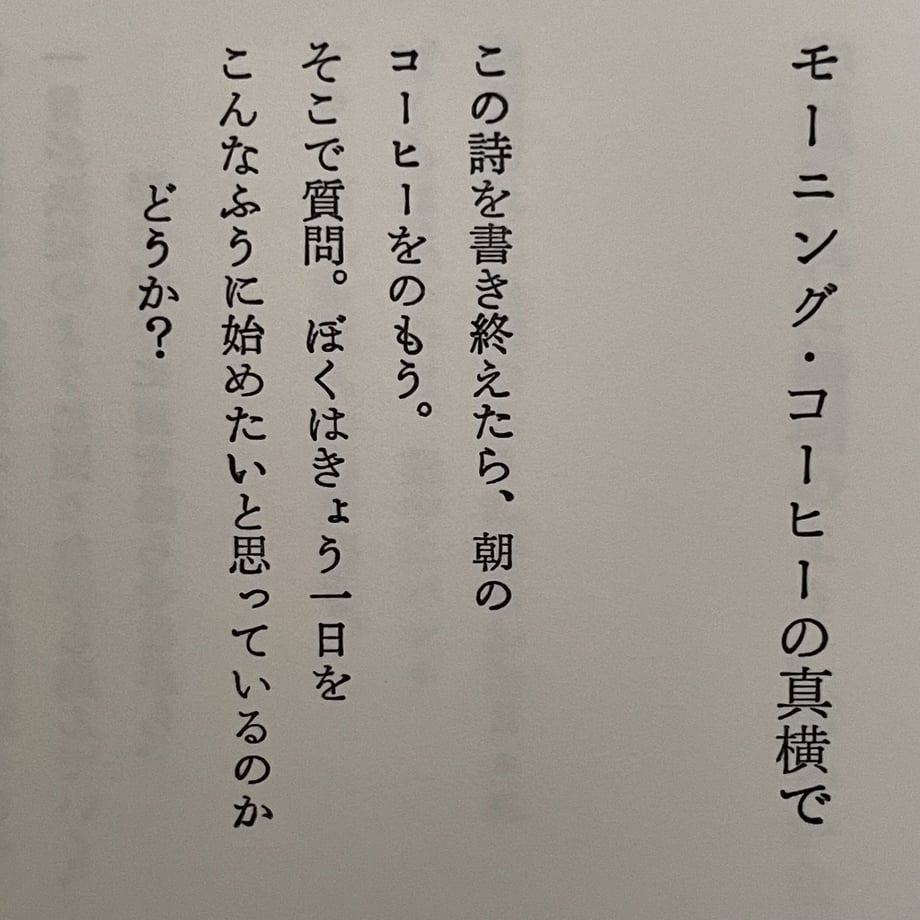 モーニング・コーヒーの真横で
この詩を書き終えたら、朝の
コーヒーをのもう。
そこで質問。ぼくはきょう一日を
こんなふうに始めたいと思っているのか
どうか？